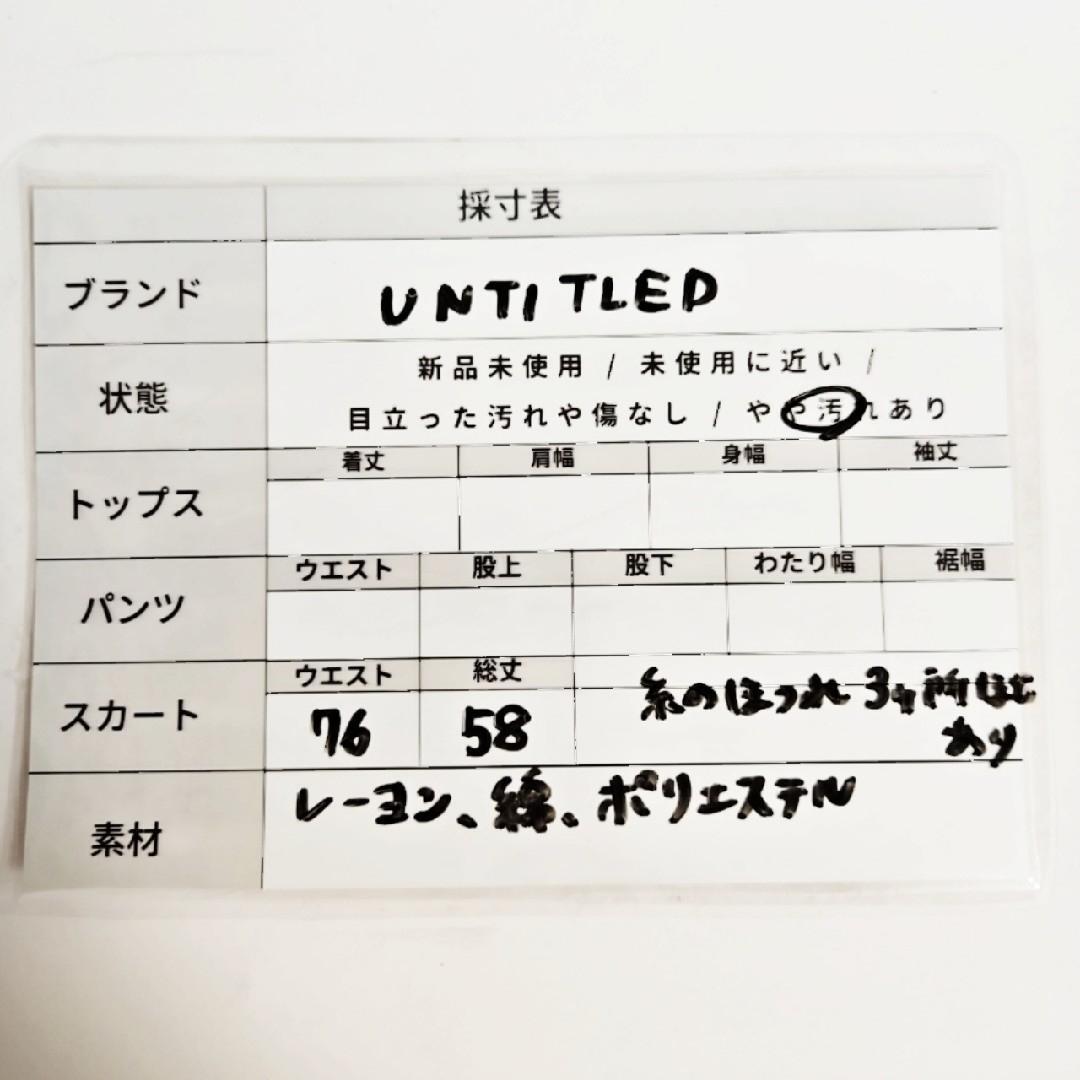 採寸表
ブランド
UNTITLED
状態
新品未使用 / 未使用に近い /
目立った汚れや傷なし / やや汚れあり
トップス
着丈 肩幅 身幅 袖丈
パンツ
ウエスト 股上 股下 わたり幅 裾幅
スカート
ウエスト 総丈
76 58
糸のほつれ 3ヶ所ほど
あり
素材
レーヨン、綿、ポリエステル